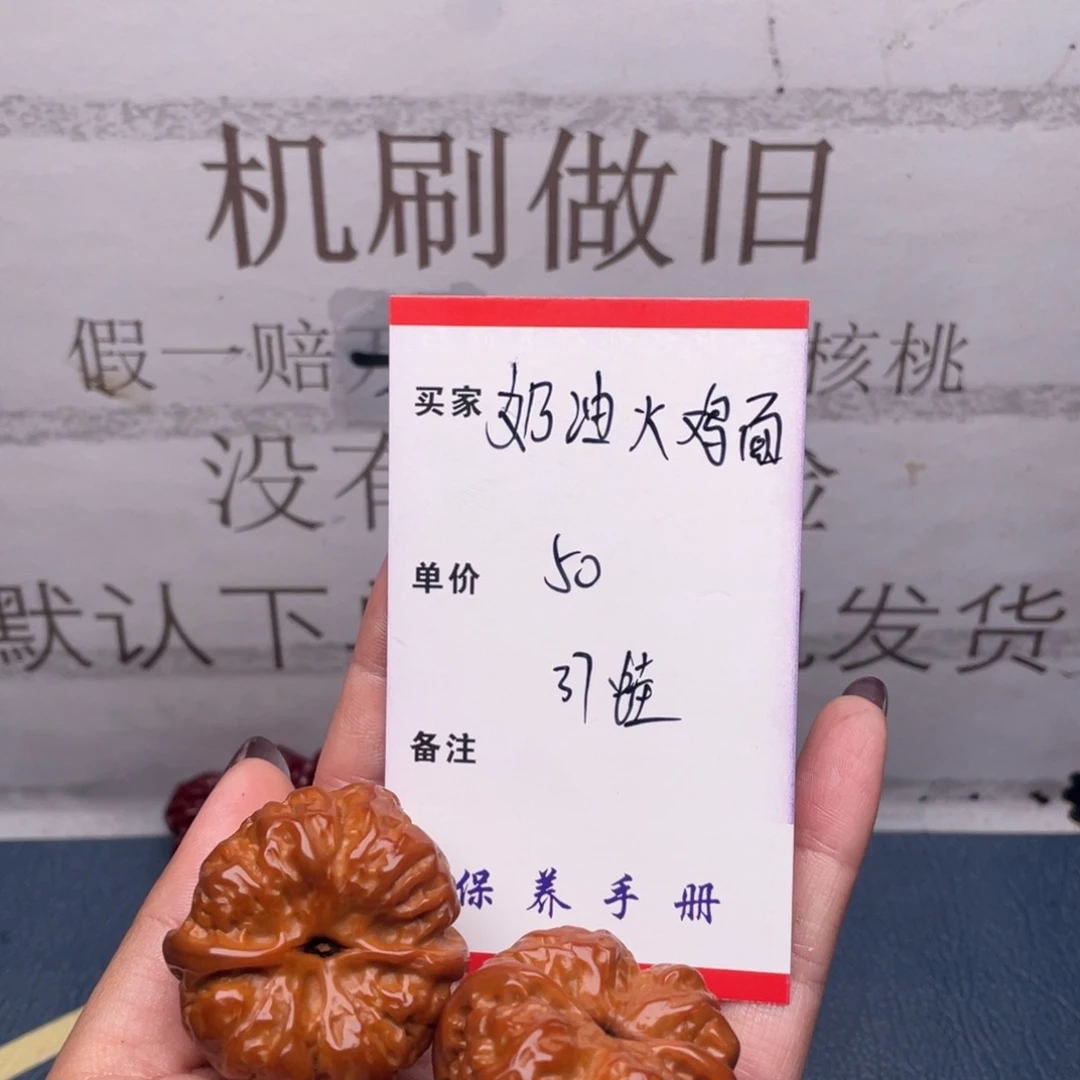 机刷做旧
假一赔
核桃
没有
默认下
发货
买家 奶油火鸡面
单价 50
引蛙
备注
保养手册